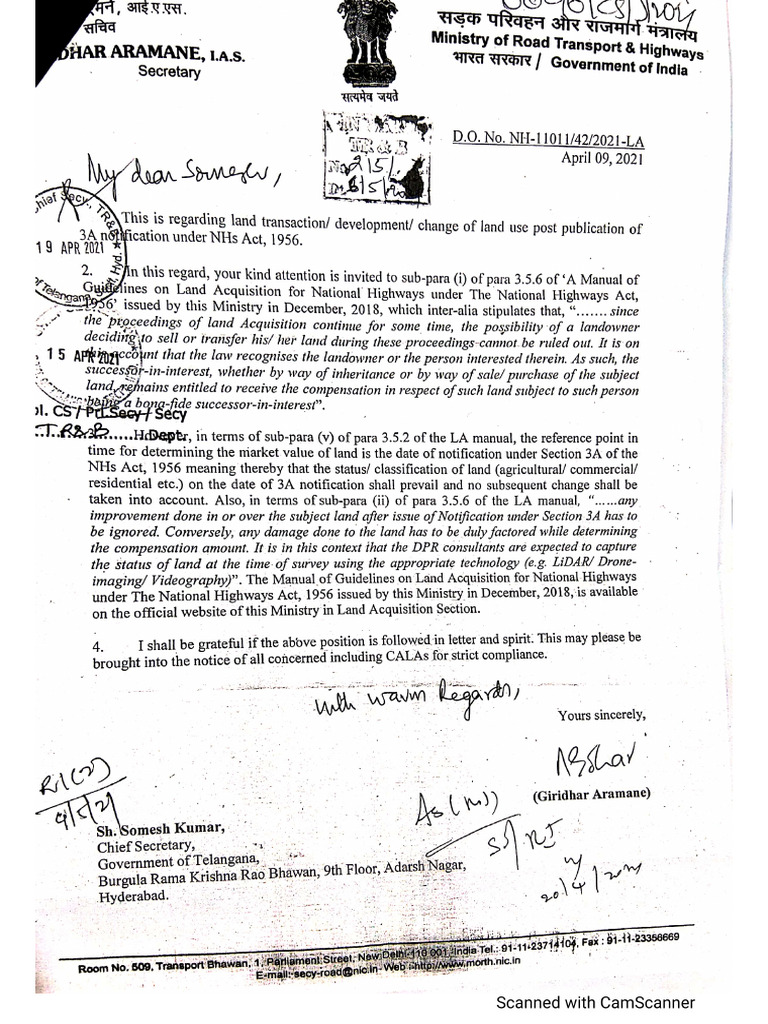 मने, आई.ए.एस.
सचिव
DHAR ARAMANE, I.A.S.
Secretary
सत्यमेव जयते
सड़क परिवहन और राजमार्ग मंत्रालय
Ministry of Road Transport & Highways
भारत सरकार / Government of India
D.O. No. NH-11011/42/2021-LA
April 09, 2021
TR & B
No 215/
My dear Somesh,
Chief Secy., TR&B
19 APR 2021
of Telangana, Hyd.
This is regarding land transaction/ development/ change of land use post publication of
3A notification under NHs Act, 1956.
2. In this regard, your kind attention is invited to sub-para (i) of para 3.5.6 of 'A Manual of
Guidelines on Land Acquisition for National Highways under The National Highways Act,
1956' issued by this Ministry in December, 2018, which inter-alia stipulates that, "....... since
the proceedings of land Acquisition continue for some time, the possibility of a landowner
deciding to sell or transfer his/ her land during these proceedings cannot be ruled out. It is on
this account that the law recognises the landowner or the person interested therein. As such, the
15 APR 2021
successor-in-interest, whether by way of inheritance or by way of sale/ purchase of the subject
land, remains entitled to receive the compensation in respect of such land subject to such person
being a bona-fide successor-in-interest".
pl. CS / Prl. Secy / Secy
T.R&B Dept.
However, in terms of sub-para (v) of para 3.5.2 of the LA manual, the reference point in
time for determining the market value of land is the date of notification under Section 3A of the
NHs Act, 1956 meaning thereby that the status/ classification of land (agricultural/ commercial/
residential etc.) on the date of 3A notification shall prevail and no subsequent change shall be
taken into account. Also, in terms of sub-para (ii) of para 3.5.6 of the LA manual, "......any
improvement done in or over the subject land after issue of Notification under Section 3A has to
be ignored. Conversely, any damage done to the land has to be duly factored while determining
the compensation amount. It is in this context that the DPR consultants are expected to capture
the status of land at the time of survey using the appropriate technology (e.g. LiDAR/ Drone-
imaging/ Videography)". The Manual of Guidelines on Land Acquisition for National Highways
under The National Highways Act, 1956 issued by this Ministry in December, 2018, is available
on the official website of this Ministry in Land Acquisition Section.
4. I shall be grateful if the above position is followed in letter and spirit. This may please be
brought into the notice of all concerned including CALAs for strict compliance.
with warm Regards,
Yours sincerely,
(Giridhar Aramane)
Sh. Somesh Kumar,
Chief Secretary,
Government of Telangana,
Burgula Rama Krishna Rao Bhawan, 9th Floor, Adarsh Nagar,
Hyderabad.
20/4/2021
Room No. 509, Transport Bhawan, 1, Parliament Street, New Delhi-110 001, India Tel.: 91-11-23714104, Fax : 91-11-23356669
E-mail: secy-road@nic.in Web : http://www.morth.nic.in
Scanned with CamScanner